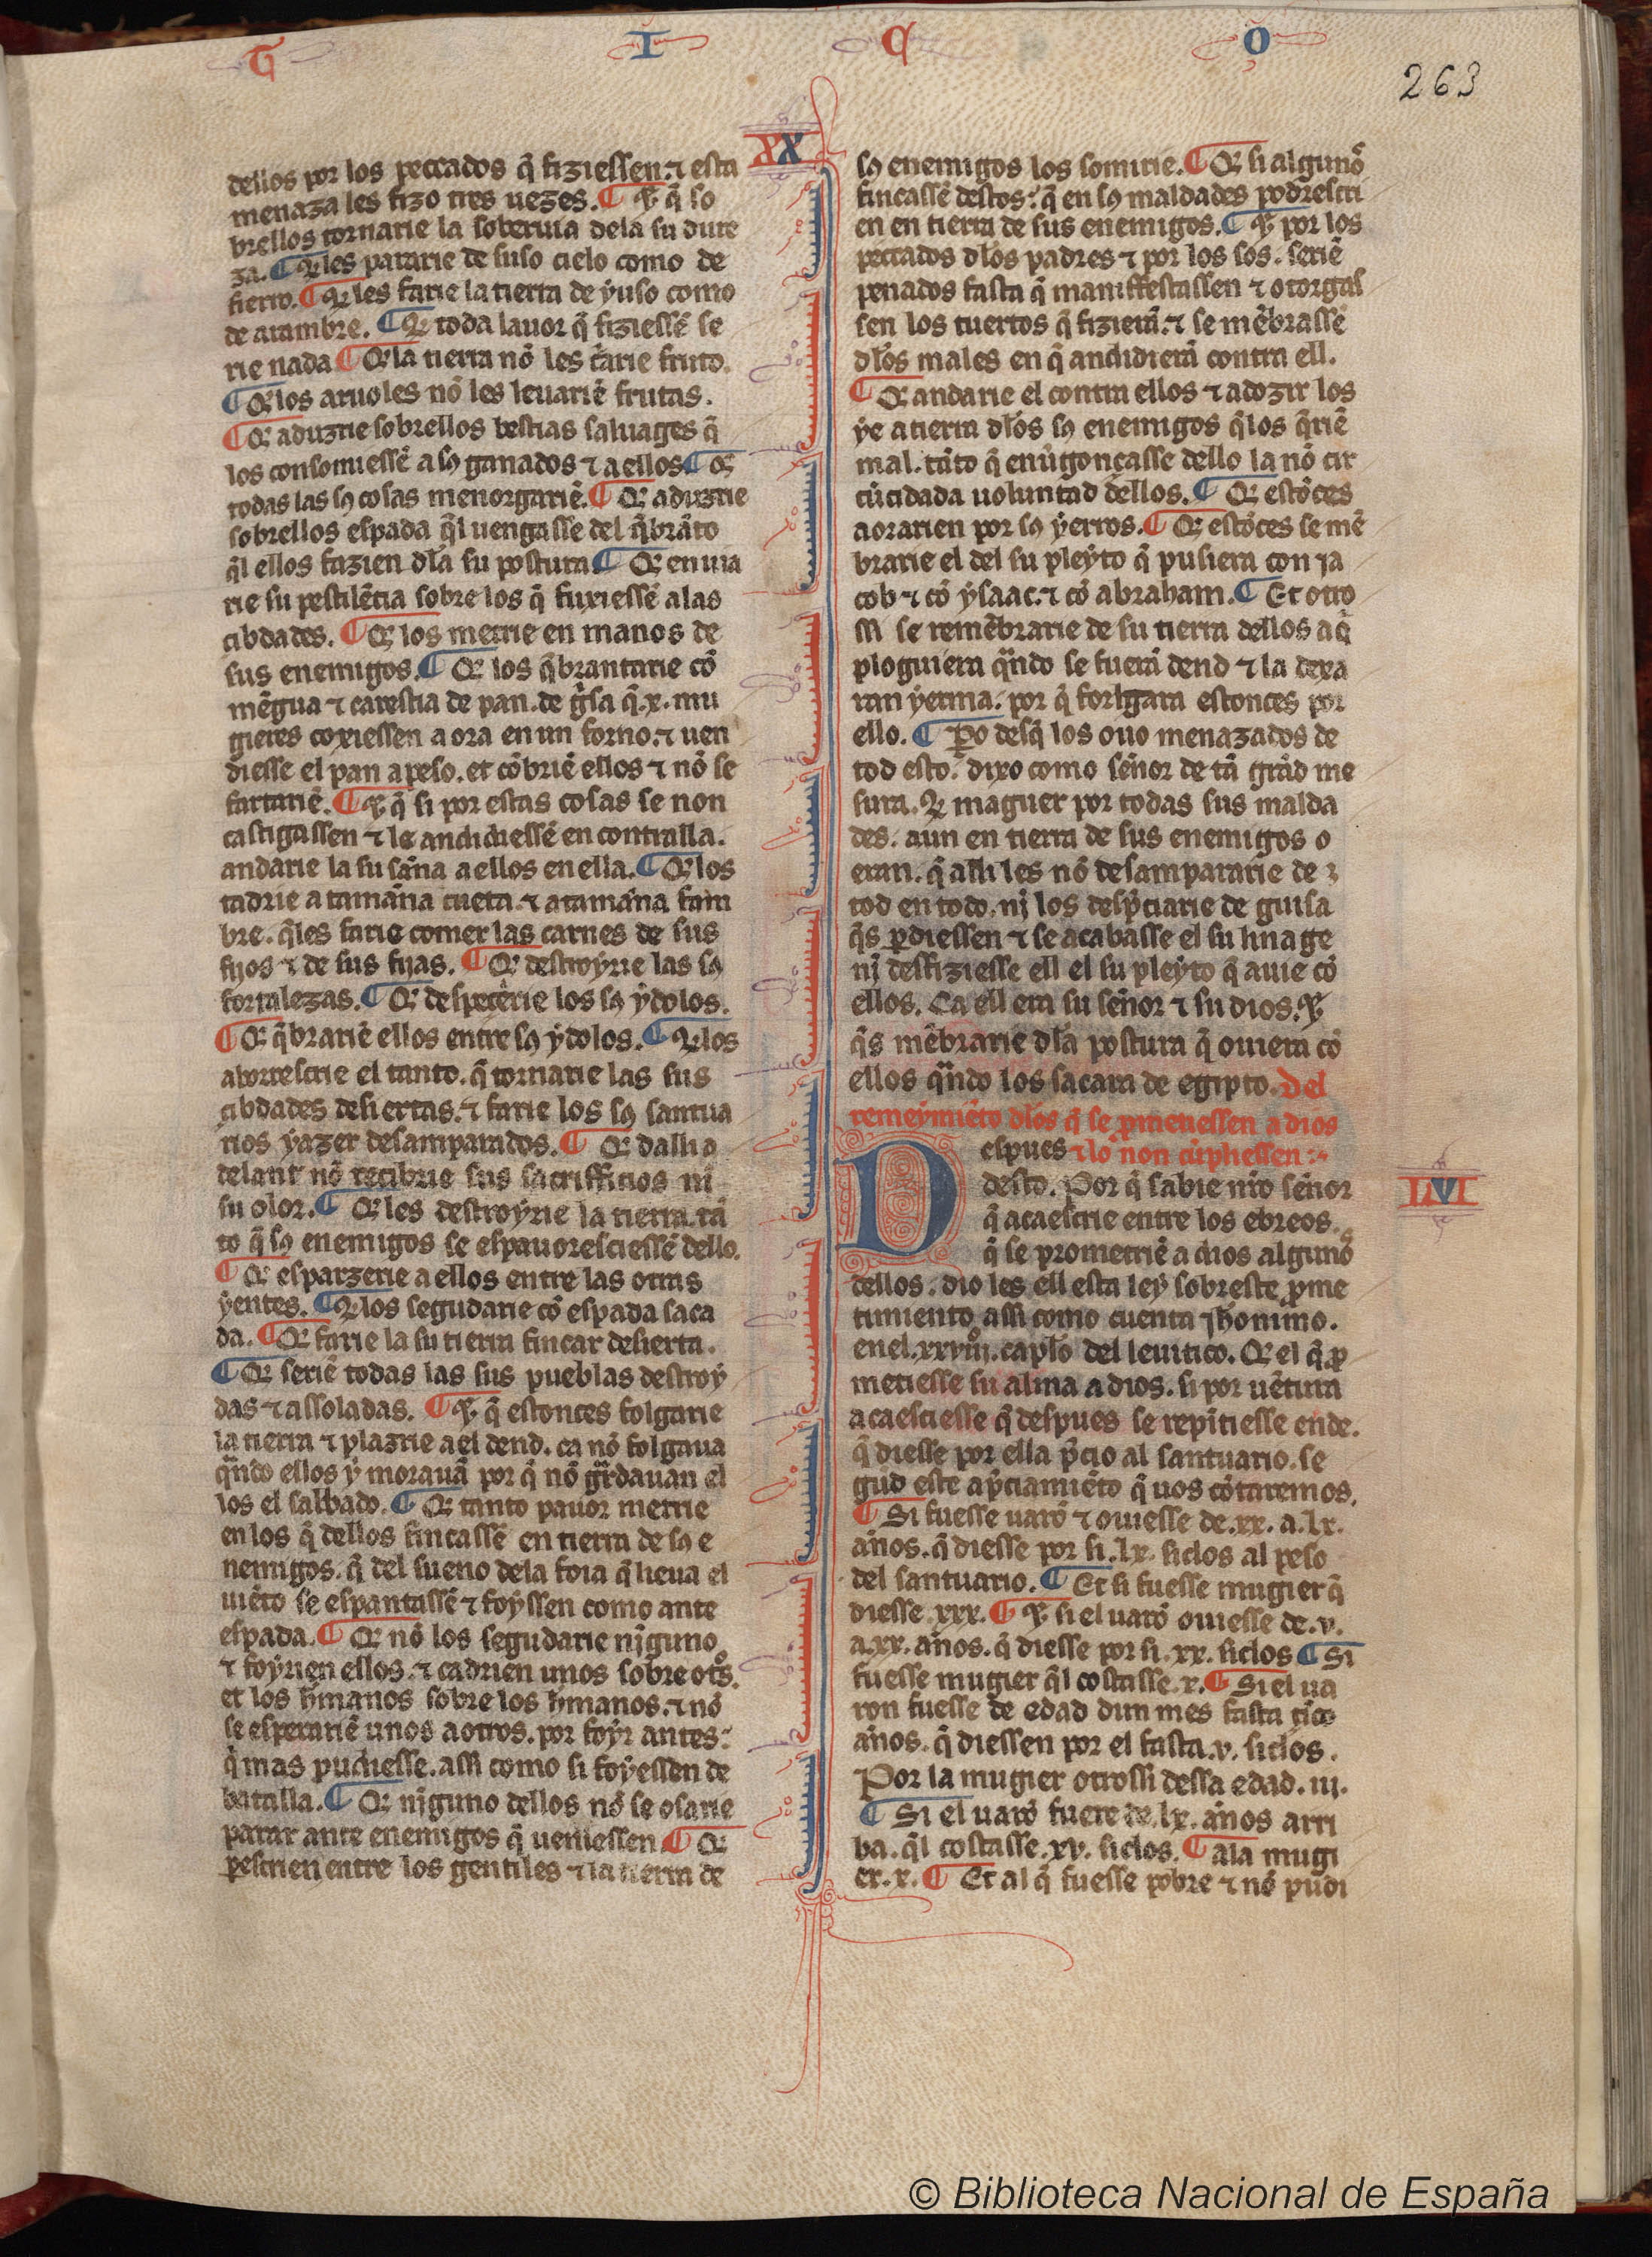 T I C O
263
XX
dellos por los peccados q̃ fiziessen. ⁊ esta
menaza les fizo tres uezes. ¶ Et q̃ so
brellos tornarie la soberuia dela su dure
za. ¶ Et les pararie de suso cielo como de
fierro. ¶ Et les farie la tierra de yuso como
de arambre. ¶ Et toda lauor q̃ fiziessẽ se
rie nada ¶ Et la tierra nõ les darie fruto.
¶ Et los aruoles nõ les leuariẽ frutas.
¶ Et aduzrie sobrellos bestias saluages q̃
los consomiessẽ a sꝯ ganados ⁊ a ellos ¶ Et
todas las sꝯ cosas menorgariẽ. ¶ Et aduzrie
sobrellos espada q̃l uengasse del q̃brãto
q̃l ellos fazien dl̃a su postura ¶ Et enuia
rie su pestilẽcia sobre los q̃ fuxiessẽ a las
cibdades. ¶ Et los metrie en manos de
sus enemigos. ¶ Et los q̃brantarie cõ
mẽgua ⁊ carestia de pan. de gͥsa q̃ .x. mu
gieres coxiessen a ora en un forno. ⁊ uen
diesse el pan a peso. et cõbriẽ ellos ⁊ nõ se
fartariẽ. ¶ Et q̃ si por estas cosas se non
castigassen ⁊ le andidiessẽ en contralla.
andarie la su sãna a ellos en ella. ¶ Et los
tadrie a tamãna cueta. ⁊ a tamãna fam
bre. q̃les farie comer las carnes de sus
fijos ⁊ de sus fijas. ¶ Et destroyrie las sꝯ
fortalezas. ¶ Et despecẽrie los sꝯ ydolos.
¶ Et q̃brariẽ ellos entre sꝯ ydolos. ¶ Et los
aborrescrie el tanto. q̃ tornarie las sus
cibdades desiertas. ⁊ farie los sꝯ santua
rios yazer desamparados. ¶ Et dalli a
delant nõ recibrie sus sacrifficios ni
su olor. ¶ Et les destroyrie la tierra. tã
to q̃ sꝯ enemigos se espauoresciessẽ dello.
¶ Et esparzerie a ellos entre las otras
yentes. ¶ Et los segudarie cõ espada saca
da. ¶ Et farie la su tierra fincar desierta.
¶ Et seriẽ todas las sus pueblas destroy
das ⁊ assoladas. ¶ Et q̃ estonces folgarie
la tierra ⁊ plazrie a el dend. ca nõ folgaua
qñdo ellos y morauã por q̃ nõ gr̃dauan el
los el sabbado. ¶ Et tanto pauor metrie
en los q̃ dellos fincassẽ en tierra de sꝯ e
nemigos. q̃ del sueno dela foia q̃ lieua el
uiẽto se espantassẽ ⁊ foyssen como ante
espada. ¶ Et nõ los segudarie njguno
⁊ foyrien ellos. ⁊ cadrien unos sobre otͦs.
et los hr̃manos sobre los hr̃manos. ⁊ nõ
se esperariẽ unos a otros. por foyr antes
q̃ mas pudiesse. assi como si foyessen de
batalla. ¶ Et njguno dellos nõ se osarie
parar ante enemigos q̃ ueniessen ¶ Et
pescrien entre los gentiles ⁊ la tierra de
sꝯ enemigos los somirie. ¶ Et si algunõ
fincassẽ destos: q̃ en sꝯ maldades podrescri
en en tierra de sus enemigos. ¶ Et por los
peccados dl̃os padres ⁊ por los sos. seriẽ
penados fasta q̃ maniffestassen ⁊ otorgas
sen los tuertos q̃ fizierã. ⁊ se mẽbrassẽ
dl̃os males en q̃ andidierã contra ell.
¶ Et andarie el contra ellos ⁊ adozir los
ye a tierra dl̃os sꝯ enemigos q̃los q̃riẽ
mal. tãto q̃ enũgonçasse dello la nõ cir
cũcidada uoluntad dellos. ¶ Et estõces
aorarien por sꝯ yerros. ¶ Et estõces se mẽ
brarie el del su pleyto q̃ pusiera con ja
cob ⁊ cõ ysaac. ⁊ cõ abraham. ¶ Et otro
ssi se remẽbrarie de su tierra dellos a q̃
ploguiera qñdo se fuerã dend ⁊ la dexa
ran yerma. por q̃ forlgara estonces por
ello. ¶ Po desq̃ los ouo menazados de
tod esto. dixo como señor de tã grãd me
sura. Et maguer por todas sus malda
des. aun en tierra de sus enemigos o
eran. q̃ alli les nõ desampararie de
tod en todo. nj los desp̃ciarie de guisa
q̃s ꝑdiessen ⁊ se acabasse el su linage
nj desfiziesse ell el su pleyto q̃ auie cõ
ellos. Ca ell era su señor ⁊ su dios. Et
q̃s mẽbrarie dl̃a postura q̃ ouiera cõ
ellos qñdo los sacara de egipto. Del
remeymiẽto dl̃os q̃ se ꝓmetiessen a dios
⁊ lo non cũpliessen:
LVI
Despues
desto. Por q̃ sabie nr̃o señor
q̃ acaescrie entre los ebreos.
q̃ se prometriẽ a dios algunõ
dellos. dio les ell esta ley sobreste ꝓme
timiento assi como cuenta jheronimo.
en el .xxviiĩ. capl̃o del leuitico. Et el q̃ ꝓ
metiesse su alma a dios. si por uẽtura
acaesciesse q̃ despues se repĩtiesse ende.
q̃ diesse por ella p̃cio al santuario. se
gud este ap̃ciamiẽto q̃ uos cõtaremos.
¶ Si fuesse uarõ ⁊ ouiesse de .xx. a .lx.
años. q̃ diesse por si .lx. siclos al peso
del santuario. ¶ Et si fuesse mugier q̃
diesse .xxx. ¶ Et si el uarõ ouiesse de .v.
a .xx. años. q̃ diesse por si .xx. siclos ¶ Si
fuesse mugier q̃l costasse .x. ¶ Si el ua
ron fuesse de edad dun mes fasta cĩco
años. q̃ diessen por el fasta .v. siclos.
Por la mugier otrossi dessa edad .iii.
¶ Si el uarõ fuere de .lx. años arri
ba. q̃l costasse .xv. siclos. ¶ A la mugi
er .x. ¶ Et al q̃ fuesse pobre ⁊ nõ pudi
© Biblioteca Nacional de España